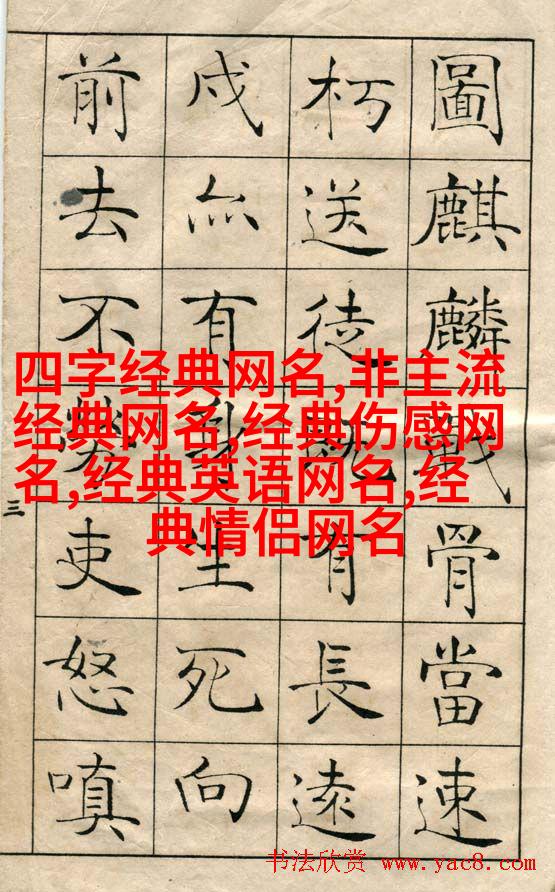 圖麒麟戰骨當速
朽送徒既有長遠
戍亦有身生死向
前去不勞吏怒嗔
三
四字经典网名,非主流
经典网名,经典伤感网
名,经典英语网名,经
典情侣网名
书法欣赏 www.yac8.com